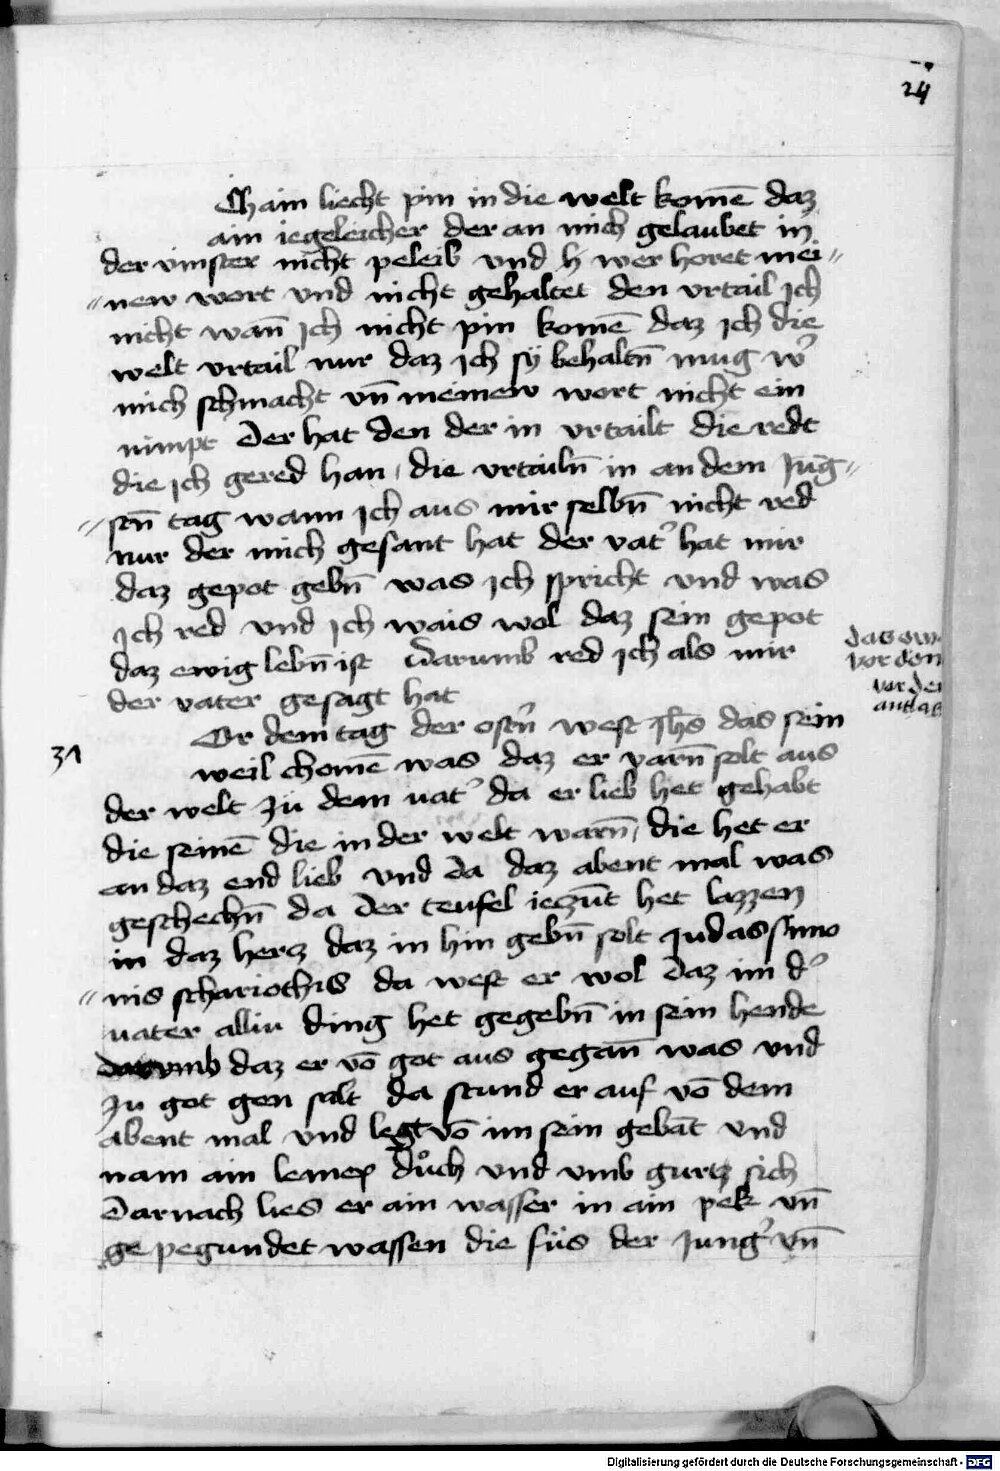 24
Ch ain liecht pin in die welt komē daz
ain iegeleicher der an mich gelaubet in
der vinster nicht peleib vnd h wer horet mei〃
〃new wort vnd nicht gehaltet den vrtail ich
nicht wan̄ Ich nicht pin komē daz ich die
welt vrtail nur daz ich sÿ behaltn̄ mug w᾽
mich schmacht vn̄ meinew wort nicht ein
nimpt Der hat den der in vrtailt die redt
die ich gered han, die vrtailn̄ in an dem Iūg〃
〃stn̄ tag wann ich aus mir selbn̄ nicht red
nur der mich gesant hat der vat᾽ hat mir
daz gepot gebn̄ was ich spricht vnd was
Ich red vnd ich wais wol daz sein gepot
daz ewig lebn̄ ist Darumb red ich als mir
der vater gesagt hat
das ew
vor den
vor de
31
Or dem tag der ostn̄ west Ihs̄ das sein
weil chomē was daz er varn̄ solt aus
der welt zu dem uat᾽ da er lieb het gehabt
die seinē die in der welt warn̄, die het er
an daz end lieb vnd da daz abent mal was
geschechn̄ da der teufel ieczūt het lazzen
in daz hercz daz in hin gebn̄ solt Judas simo
〃nis schariothis da west er wol daz im d᾽
uater alliu ding het gegebn̄ in sein hende
darumb daz er vō got aus gegan̄ was vnd
zu got gen solt da stund er auf vō dem
abent mal vnd legt vō im sein gebāt vnd
nam ain leinep důch vnd vmb gurtz sich
Darnach lies er ain wasser in ain pek vn̄
ge pegundet wassen die füs der Jung᾽ vn̄
Digitalisierung gefördert durch die Deutsche Forschungsgemeinschaft - DFG